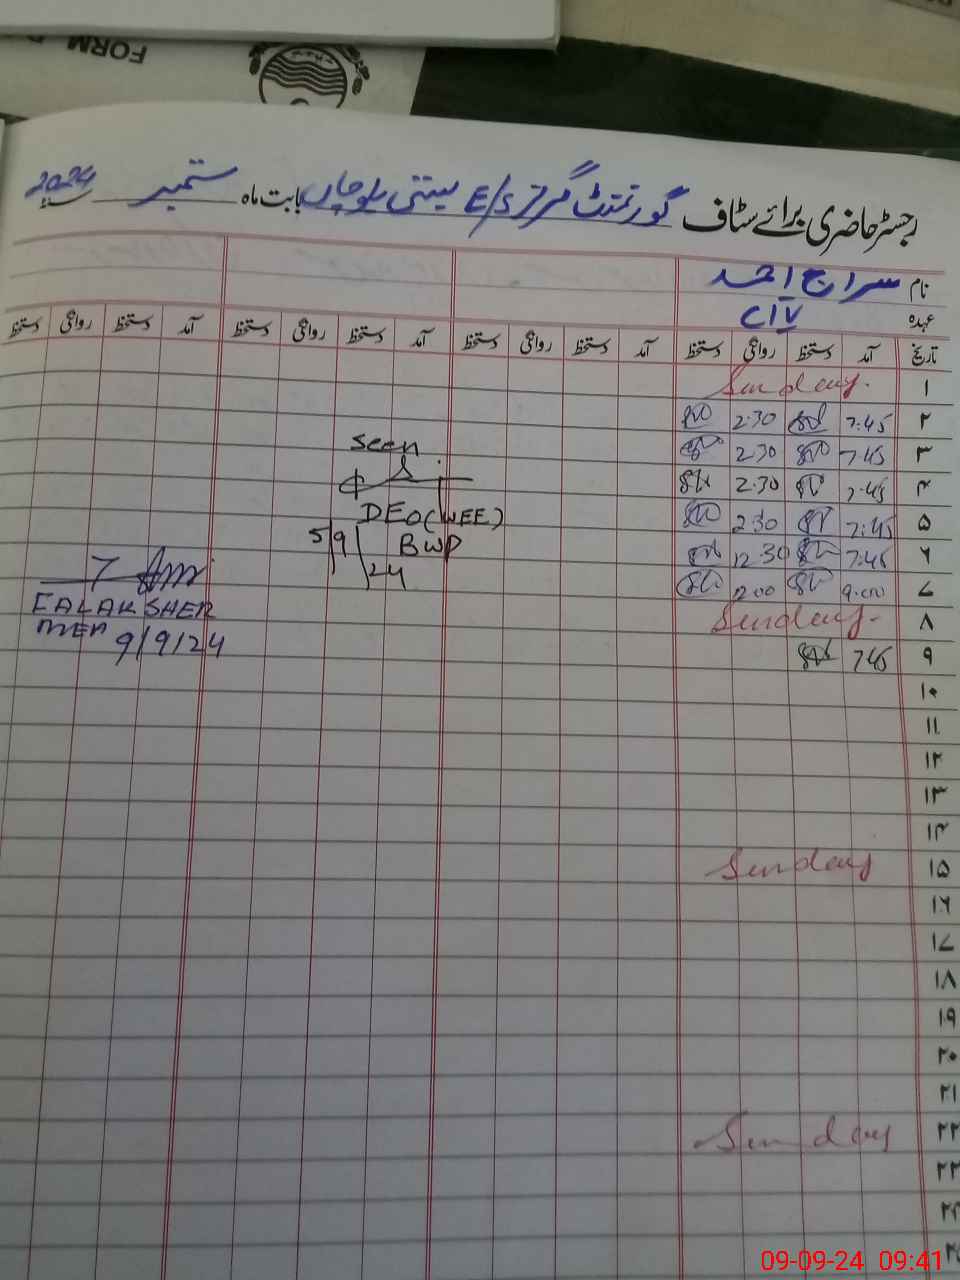 FORM
رجسٹر حاضری برائے سٹاف گورنمنٹ گرلز E/S بستی بلوچاں بابت ماہ ستمبر سنہ 2024
نام سراج احمد
عہدہ C/IV
تاریخ آمد دستخط روانگی دستخط آمد دستخط روانگی دستخط آمد دستخط روانگی دستخط آمد دستخط روانگی دستخط
۱ Sunday.
۲ 7:45 2:30
۳ 7:45 2:30
۴ 7:45 2:30
۵ 7:45 2:30
۶ 7:45 12:30
۷ 9:00 12:00
۸ Sunday.
۹ 7:45
۱۰
۱۱
۱۲
۱۳
۱۴
۱۵ Sunday
۱۶
۱۷
۱۸
۱۹
۲۰
۲۱
۲۲ Sunday
۲۳
۲۴
seen
DEO (WEE)
BWP
5/9/24
FALAK SHER
MEA 9/9/24
09-09-24 09:41